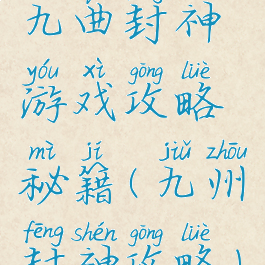 九曲封神
yóu xì gōng lüè
游戏攻略
mì jí jiǔ zhōu
秘籍(九州
fēng shén gōng lüè
封神攻略)